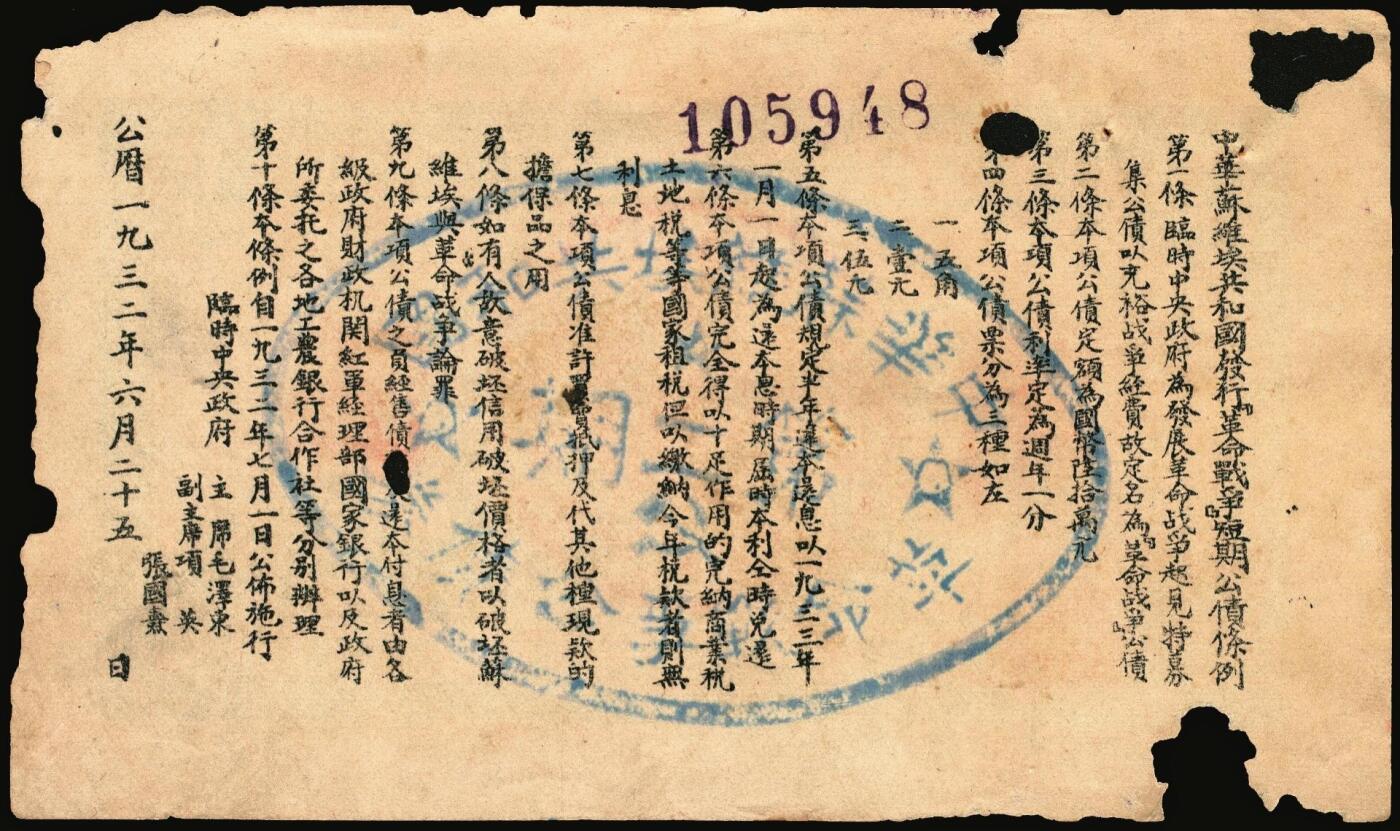 105948
中華蘇維埃共和國發行『革命戰爭』短期公債條例
第一條臨時中央政府為發展革命战爭起見特募
集公債以充裕战爭經費故定名為『革命战爭』公債
第二條本項公債定額為國幣陸拾萬元
第三條本項公債利率定為週年一分
第四條本項公債票分為三種如左
一五角
二壹元
三伍元
第五條本項公債規定半年還本還息以一九三三年
一月一日起為還本息時期屆時本利全時兌還
第六條本項公債完全得以十足作用的完納商業税
土地税等等國家租税但以繳納今年税欵者則無
利息
第七條本項公債准許買賣抵押及代其他種現欵的
擔保品之用
第八條如有人故意破坯信用破坯價格者以破坯蘇
維埃與革命战爭論罪
第九條本項公債之員經售債還本付息者由各
級政府財政机関紅軍經理部國家銀行以及政府
所委托之各地工農銀行合作社等分别辦理
第十條本條例自一九三二年七月一日公佈施行
臨時中央政府
主席毛澤東
副主席項英
張國燾
公曆一九三二年六月二十五日